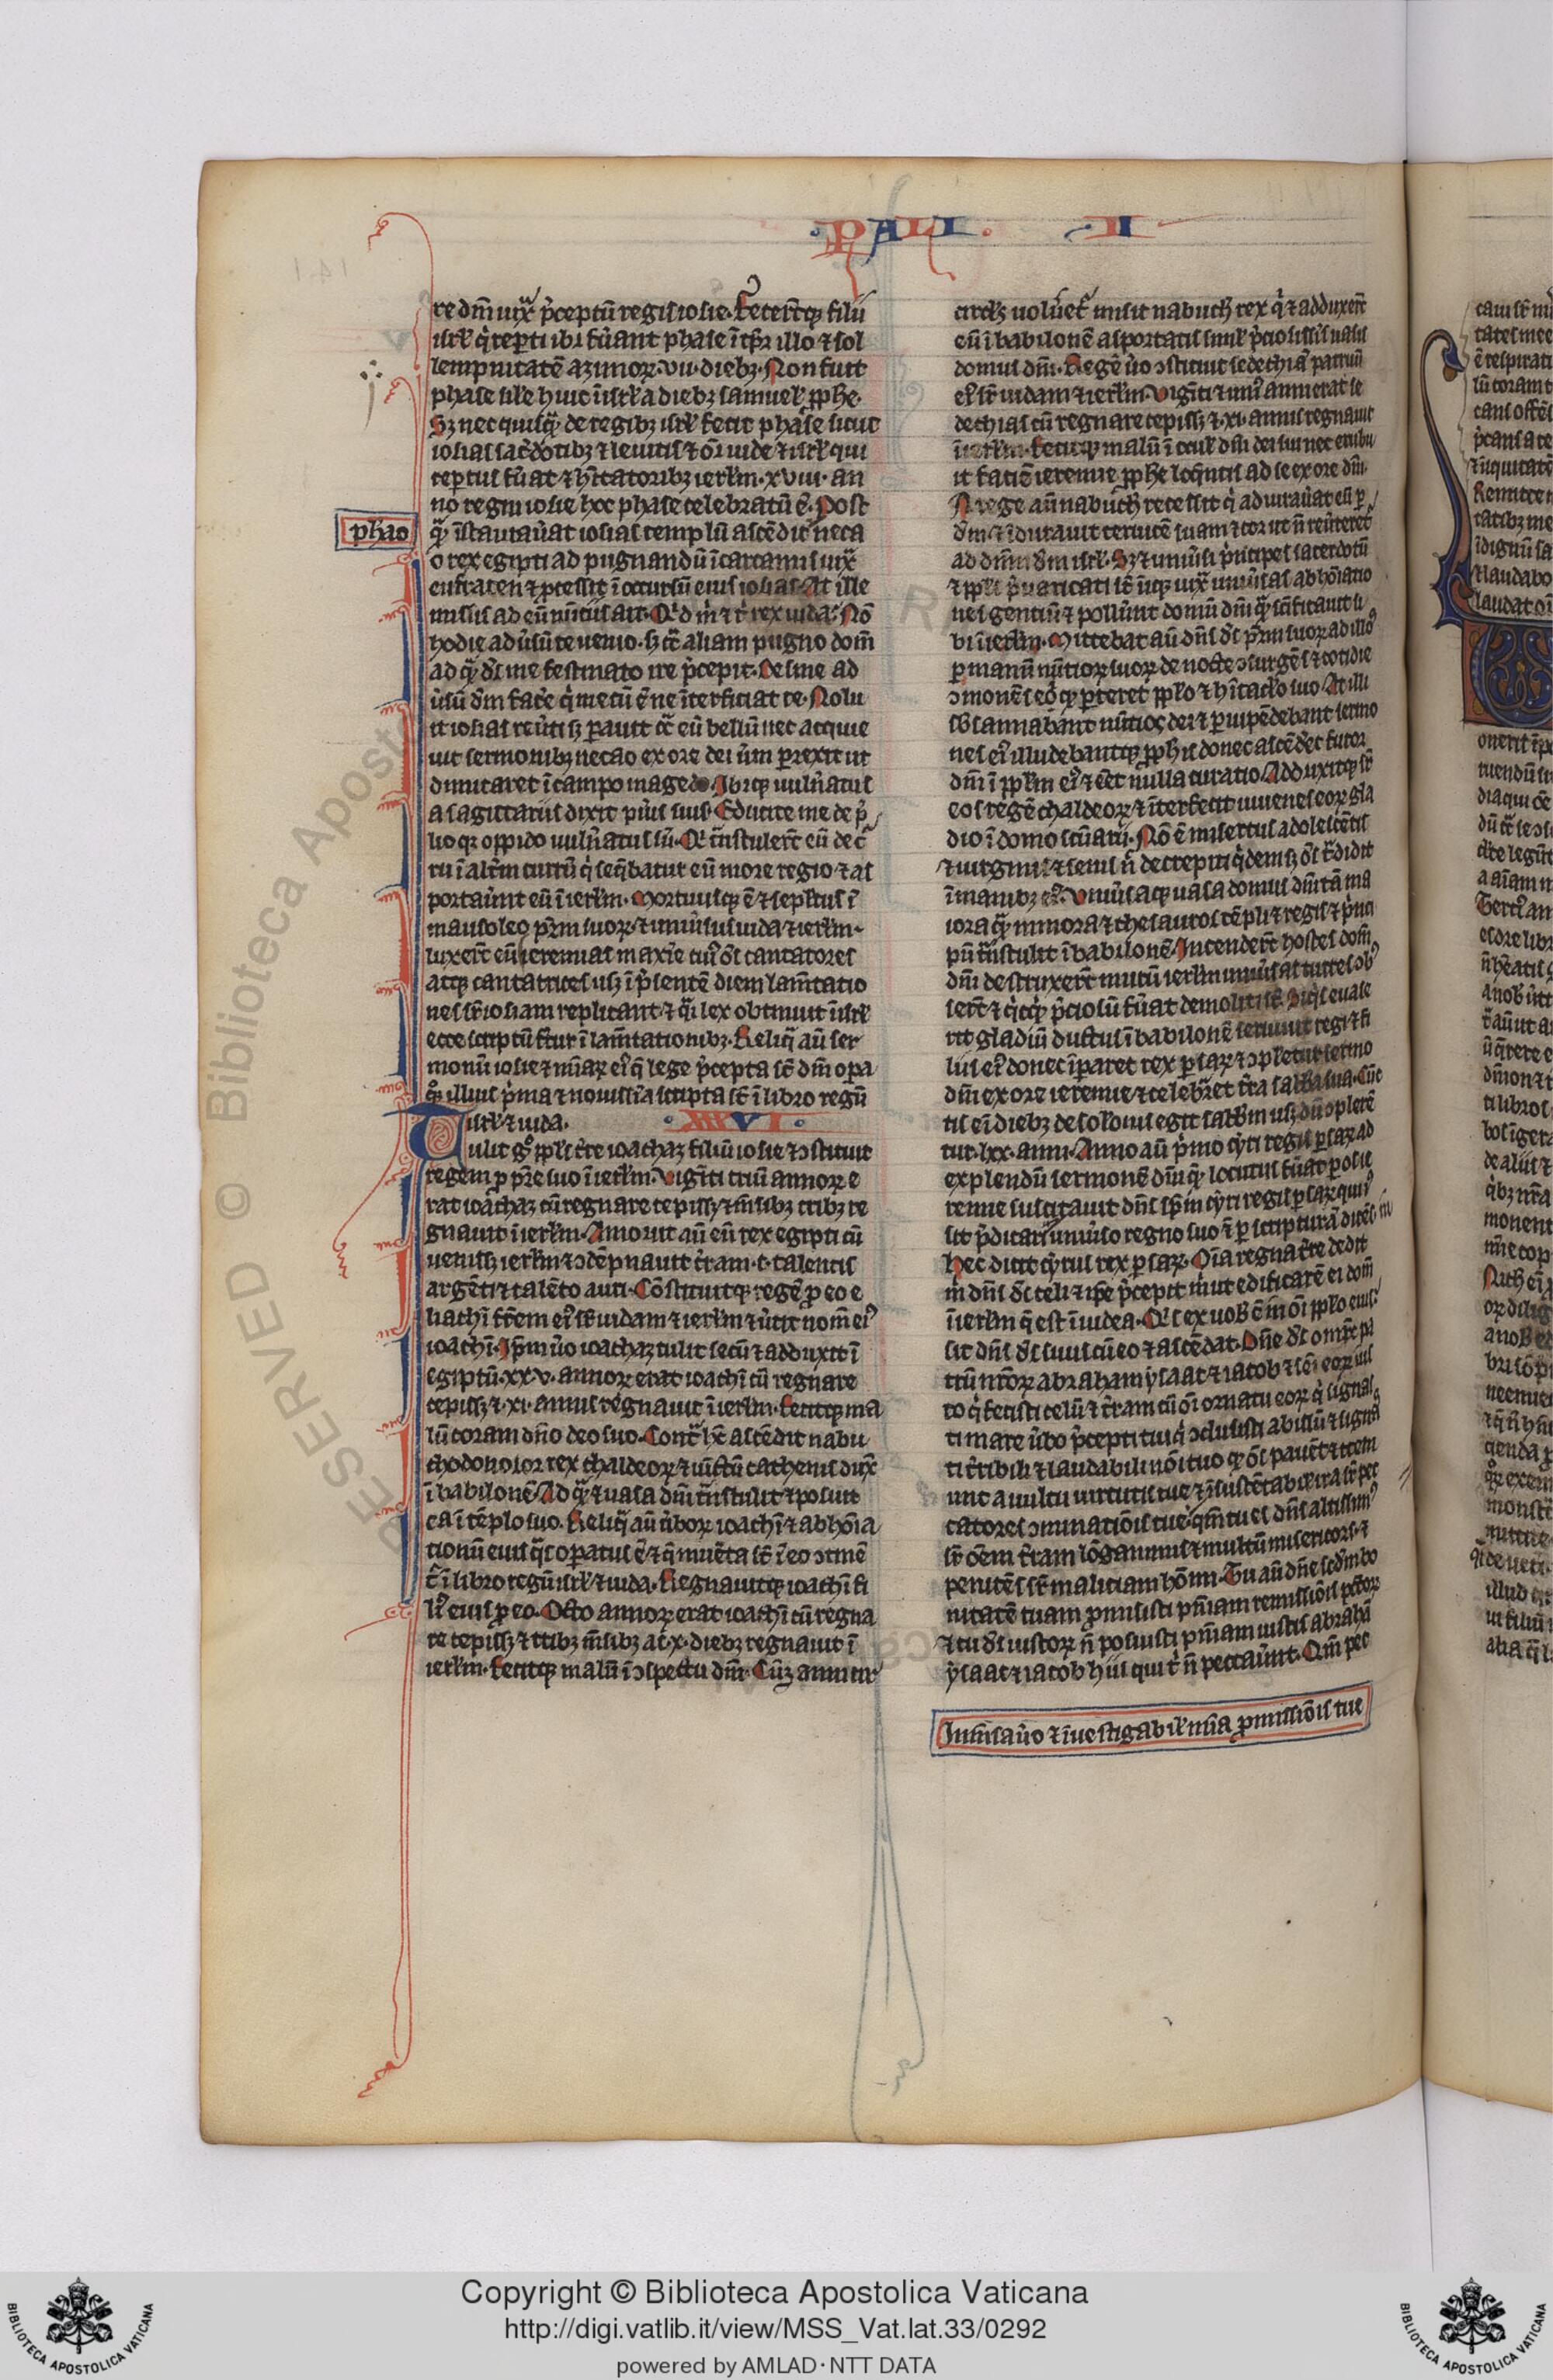 PALI. II
re dm̄ iux̄ p̄ceptū regis iosie. Feceꝛt̄qꝫ filii
isrł q̇ repti ibi fūant phase ī tp̄r illo ⁊ sol
lempnitatē azimoꝝ. vii. diebꝫ. Non fuit
phase sił'e huic ī isrł a diebꝫ samueł ꝓph̄e.
Sꝫ nec quisq̄ꝫ de regibꝫ isrł fecit phase sicut
iosias sac̄dotibꝫ ⁊ leuitis ⁊ ōi iude ⁊ isrł qui
reptus fūat ⁊ h̄itatoribꝫ ierłm. xviii. an
no regni iosie hec phase celebratū ē. Post
phao
q̄ꝫ īstaurauāt iosias templū ascēdit neca
o rex egipti ad pugnandū ī carcamis iux̄
eufraten ⁊ ꝓcessit ī occursū eius iosias. At ille
missis ad eū nūtiis ait. Qͥd m̄ ⁊ t̄ rex iuda? Nō
hodie adūsū te uenio. sꝫ ꝯt̄ aliam pugno dom̄
ad q̄ꝫ ds̄ me festinato ire p̄cepit. Desine ad
ūsū dm̄ fac̄e q̇ mecū ē ne īterficiat te. Nolu
it iosias reūti sꝫ ꝑauit ꝯt̄ eū bellū nec acquie
uit sermonibꝫ necao ex ore dei ūm ꝑrexit ut
dimicaret ī campo magedo. Ibiqꝫ uuln̄atus
a sagittariis dixit pūis suis. Educite me de p̄
lio qꝛ oppido uuln̄atus sū. Qͥ t̄nstuleꝛt̄ eū de c̄
ru ī alt̄m currū q̇ seq̄batur eū more regio ⁊ as
portauūt eū ī ierłm. Mortuusqꝫ ē ⁊ sepłtus ī
mausoleo pr̄m suoꝝ. ⁊ uniūsus iuda ⁊ ierłm
luxeꝛt̄ eū ieremias maxīe cuiꝰ ōs cantatores
atqꝫ cantatrices usqꝫ ī p̄sentē diem lam̄tatio
nes sr̄ iosiam replicant ⁊ q̄ī lex obtinuit ī isrł
ecce scriptū fertur ī lam̄tationibꝫ. Reliq̄ aū ser
monū iosie ⁊ mīaꝝ eiꝰ q̄ lege p̄cepta sē dn̄i opa
qꝫ illius p̄ma ⁊ nouissīa scripta sē ī libro regū
isrł ⁊ iuda. XXXVI.
Tulit gͦ ppłs t̄re ioachaz filiū iosie ⁊ ꝯstituit
regem ꝓ pr̄e suo ī ierłm. Vigīti triū annoꝝ e
rat ioachaz cū regnare cepissꝫ ⁊ m̄sibꝫ tribꝫ re
gnauit ī ierłm. Amouit aū eū rex egipti cū
uenissꝫ ierłm ⁊ ꝯdēpnauit t̄ram. c. talentis
argēti ⁊ talēto auri. Cōstituitqꝫ regē ꝓ eo e
liachī fr̄em eiꝰ sr̄ iudam ⁊ ierłm ⁊ ūtit nom̄ eiꝰ
ioachī. Ip̄m ūo ioachaz tulit secū ⁊ adduxit ī
egiptū. xxv. annoꝝ erat ioachī cū regnare
cepissꝫ ⁊ xi. annis regnauit ī ierłm. Fecitqꝫ ma
lū coram dn̄o deo suo. Cont̄ hc̄ ascēdit nabu
chodonosor rex chaldeoꝝ ⁊ uīctū cathenis dux̄
ī babilonē. Ad q̄ꝫ ⁊ uasa dn̄i t̄nstulit ⁊ posuit
ea ī tēplo suo. Reliq̄ aū ūboꝝ ioachī ⁊ abhōia
tionū eius q̄s opatus ē ⁊ q̄ inuēta sē ī eo ꝯtinē
t̄ ī libro regū isrł ⁊ iuda. Regnauitqꝫ ioachī fi
liꝰ eius ꝓ eo. Octo annoꝝ erat ioachī cū regna
re cepissꝫ ⁊ tribꝫ m̄sibꝫ ac. x. diebꝫ regnauit ī
ierłm. Fecitqꝫ malū ī ꝯspectu dn̄i. Cūqꝫ anni cir
circłs uoluet̄ misit nabuch̄ rex q̇ ⁊ adduxeꝛt̄
eū ī babilonē asportatis simł p̄ciosissīs uasis
domus dn̄i. Regē ūo ꝯstituit sedechiā patruū
eiꝰ sr̄ iudam ⁊ ierłm. Vigīti ⁊ uniꝰ anni erat se
dechias cū regnare cepissꝫ ⁊ xi. annis regnauit
ī ierłm. Fecitqꝫ malū ī ocuł dn̄i dei sui nec erubu
it faciē ieremie ꝓph̄e loq̄ntis ad se ex ore dn̄i.
A rege aū nabuch̄ recessit q̇ adiurauāt eū ꝑ
dm̄ ⁊ īdurauit ceruicē suam ⁊ cor ut n̄ reūteret̄
ad dm̄ dm̄ isrł. Sꝫ ⁊ uniūsi p̄ncipes sacerdotū
⁊ ppłi p̄uaricati sē īiqꝫ iux̄ uniūsas abhōiatio
nes gentiū ⁊ polluūt domū dn̄i q̄ꝫ sc̄ificauit si
bi ī ierłm. Mittebat aū dn̄s ds̄ pr̄m suoꝝ ad illoꝰ
ꝑ manū nūtioꝝ suoꝝ de nocte ꝯsurgēs ⁊ cotidie
ꝯmonēs eo qꝫ ꝑceret ppło ⁊ h̄itacło suo. At illi
sbsannabant nūtios dei ⁊ ꝑuipēdebant sermo
nes eiꝰ illudebantqꝫ ꝓph̄is donec ascēdet furor
dn̄i ī ppłm eiꝰ ⁊ eēt nulla curatio. Adduxitqꝫ sr̄
eos regē chaldeoꝝ ⁊ īterfecit iuuenes eoꝝ gla
dio ī domo sc̄uarii. Nō ē misertus adolescētis
⁊ uirginis ⁊ senis n̄ decrepiti q̇dem sꝫ ōs t̄didit
ī manibꝫ eiꝰ. Uniūsaqꝫ uasa domus dn̄i tā ma
iora q̄ꝫ minora ⁊ thesauros tēpli ⁊ regis ⁊ p̄nci
pū t̄nstulit ī babilonē. Incendeꝛt̄ hostes dom̄
dn̄i destruxeꝛt̄ murū ierłm uniūsas turres ꝯbꝰ
seꝛt̄ ⁊ q̇cq̇ p̄ciosū fūat demoliti sē. Siq̇s euase
rit gladiū ductus ī babilonē seruiuit regi ⁊ fi
liis eiꝰ donec īparet rex ꝑsaꝝ ⁊ ꝯpletur sermo
dn̄i ex ore ieremie ⁊ celebret t̄ra sabbata sua. Cūc
tis eī diebꝫ desolōnis egit sabbm usqꝫ dū ꝯplerē
tur. lxx. anni. Anno aū p̄mo cyri regis ꝑsaꝝ ad
explendū sermonē dn̄i q̄ꝫ locutus fūat ꝑ os ie
remie suscitauit dn̄s sp̄m cyri regis ꝑsaꝝ qui iuſ
sit p̄dicari ī uniūso regno suo ⁊ ꝑ scripturā dicēs.
Hec dicit cyrus rex ꝑsaꝝ. Oīa regna t̄re dedit
m̄ dn̄s ds̄ celi ⁊ ipse p̄cepit m̄ ut edificarē ei dom̄
ī ierłm q̄ est ī iudea. Qͥs ex uob̄ ē ī ōi ppło eius?
sit dn̄s ds̄ suus cū eo ⁊ ascēdat. Dn̄e ds̄ omp̄s pa
trū nr̄oꝝ abraham ysaac ⁊ iacob ⁊ sēi eoꝝ ius
to q̇ fecisti celū ⁊ t̄ram cū ōi ornatu eoꝝ q̇ signas
ti mare ūbo p̄cepti tui q̇ ꝯclusisti abissū ⁊ signas
ti t̄ribili ⁊ laudabili nōi tuo qꝫ ōs pauēt ⁊ trem
unt a uultu uirtutis tue ⁊ īsustētabił ira sr̄ pec
catores ꝯminatiōis tue. qm̄ tu es dn̄s altissimꝰ
sr̄ oēm t̄ram lōganimis ⁊ multū misericors. ⁊
penitēs sr̄ malitiam hōīm. Tu aū dn̄e scdm̄ bo
nitatē tuam ꝓmisisti pn̄iam remissiōis pctōꝝ
⁊ tu ds̄ iustoꝝ n̄ posuisti pn̄iam iustis abrahā
ysaac ⁊ iacob hiis qui t̄ n̄ peccauūt. Qm̄ pec
Īmn̄sa ūo ⁊ īuestigabił mīa ꝓmissiōis tue
RESERVED © Biblioteca Apost
Copyright © Biblioteca Apostolica Vaticana
http://digi.vatlib.it/view/MSS_Vat.lat.33/0292
powered by AMLAD·NTT DATA
BIBLIOTECA APOSTOLICA VATICANA
BIBLIOTECA APOSTOLICA VATICANA